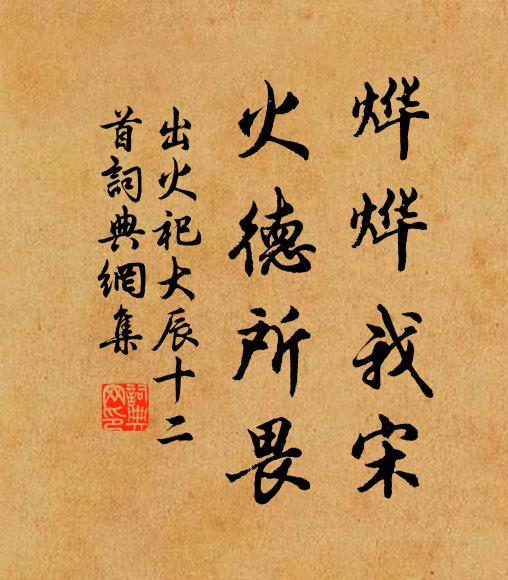 烨烨我宋
火德所畏
出火祀大辰十二
首詞典網集